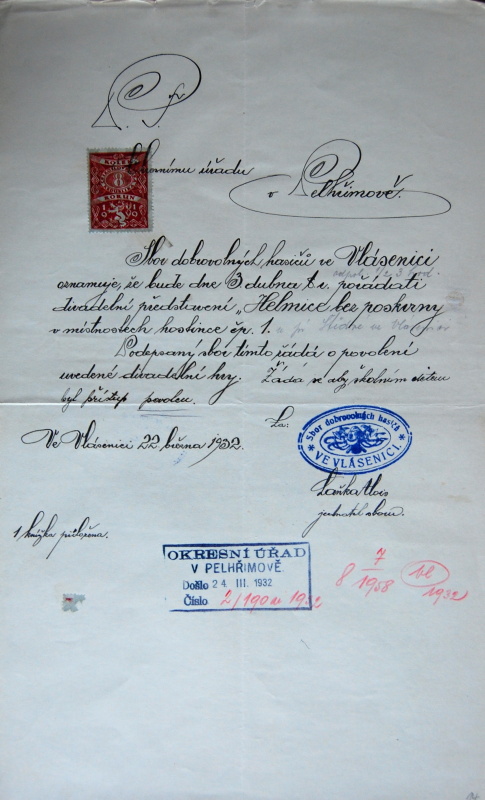 KORUN
8
KORUN
úřadu
v Pelhřimově.
Sbor dobrovolných hasičů ve Vlásenici
oznamuje, že bude dne 3 dubna t.r. pořádati
divadelní představení „Helmice bez poskvrny
v místnostech hostince čp. 1.
Podepsaný sbor tímto žádá o povolení
uvedené divadelní hry. Žádá se aby školním dětem
byl přístup povolen.
Za:
Sbor dobrovolných hasičů
VE VLÁSENICI.
Ve Vlásenici 22 března 1932.
jednatel sboru.
1 knížka přiložena.
OKRESNÍ ÚŘAD
V PELHŘIMOVĚ.
Došlo 24 III. 1932
Číslo 2/190
8 7
1958
1932